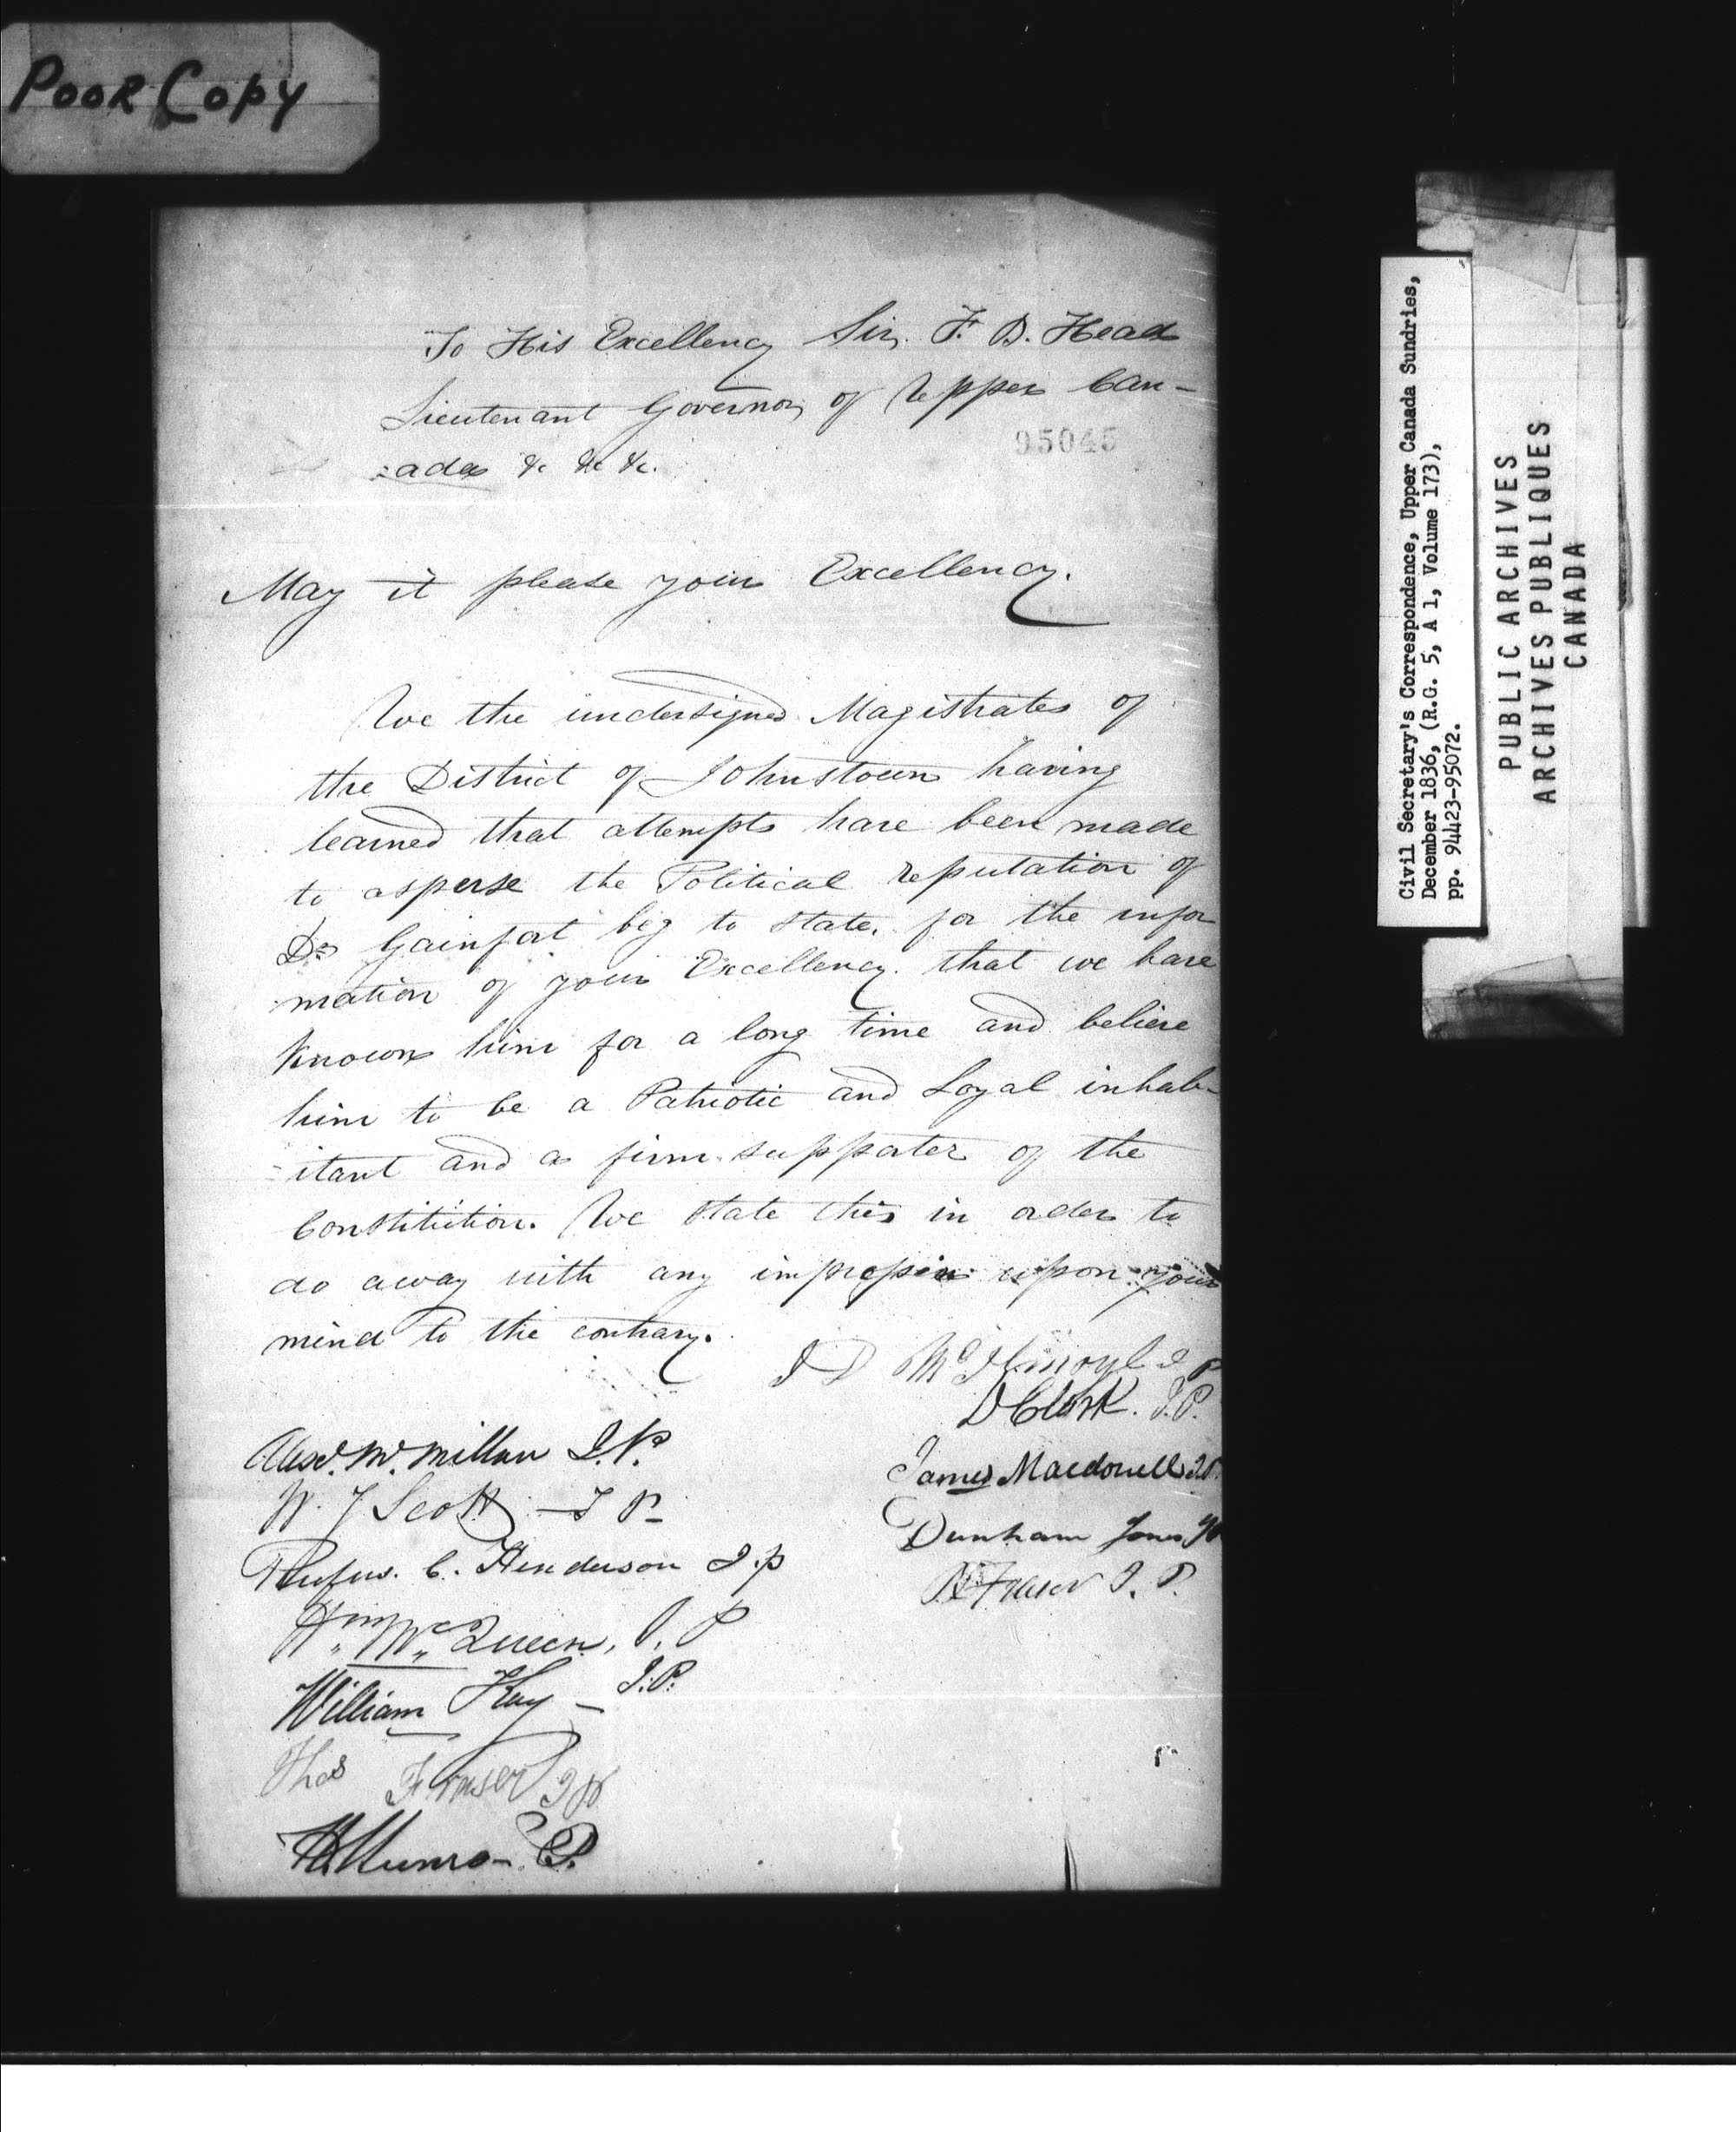 Poor Copy
To His Excellency Sir. F. B. Head
Lieutenant Governor of Upper Can-
-ada &c &c &c.
95045
May it please your Excellency.
We the undersigned Magistrates of
the District of Johnstown having
learned that attempts have been made
to asperse the Political reputation of
Dr Gainfort beg to state. for the infor
mation of your Excellency. that we have
known him for a long time and believe
him to be a Patriotic and Loyal inhab-
-itant and a firm supporter of the
Constitution. We state this in order to
do away with any impression upon your
mind to the contrary.
D Clark. J.P.
Alexr. Mc. Millan J.P.
James Macdonell J.P.
W. J Scott - J P-
Dunham Jones JP
Rufus. C. Henderson J.p
Fraser J. P.
Wm. Mc. Queen, J. P
William Kay - J.P.
Thos Fraser JP
H Munro- J.P.
Civil Secretary's Correspondence, Upper Canada Sundries,
December 1836, (R.G. 5, A 1, Volume 173),
pp. 94423-95072.
PUBLIC ARCHIVES
ARCHIVES PUBLIQUES
CANADA